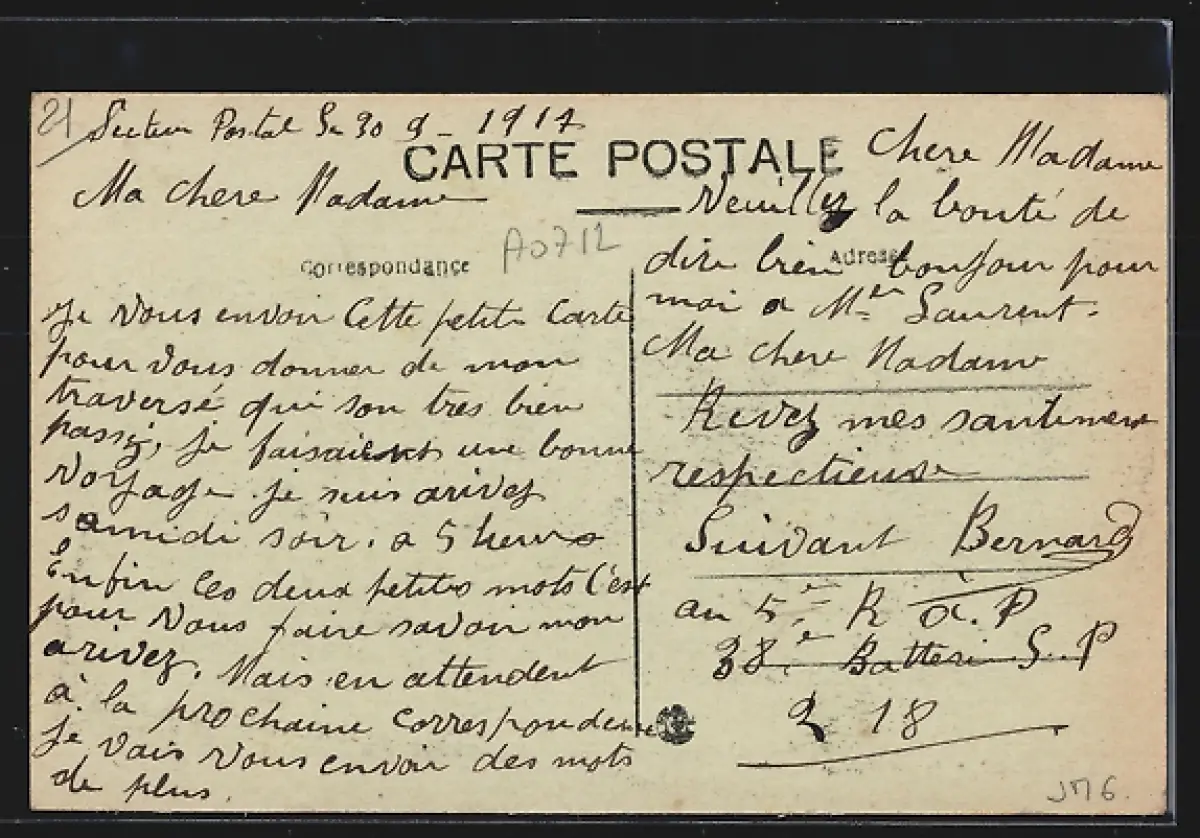 21
Secteur Postal Le 30 9 - 1917
CARTE POSTALE
Ma chere Madame
A0712
Correspondance
Je vous envoir Cette petite Carte
pour vous donner de mon
traversé qui son tres bien
passéz, je faisaient une bonne
voyage je suis arivez
samidi soir. a 5 heures
Enfin ces deux petites mots C'est
pour vous faire savoir mon
arivez. Mais en attendent
à la prochaine Correspondense
Je vais vous envoir des mots
de plus.
Chere Madame
Veuillez la bonté de
Adresse
dire bien bonjour pour
moi a Mme Laurent.
Ma chere Madame
Revez mes santiment
respectieuse
Suivant Bernard
au 5e R à. P
38e Batterie S. P
218
JM6.